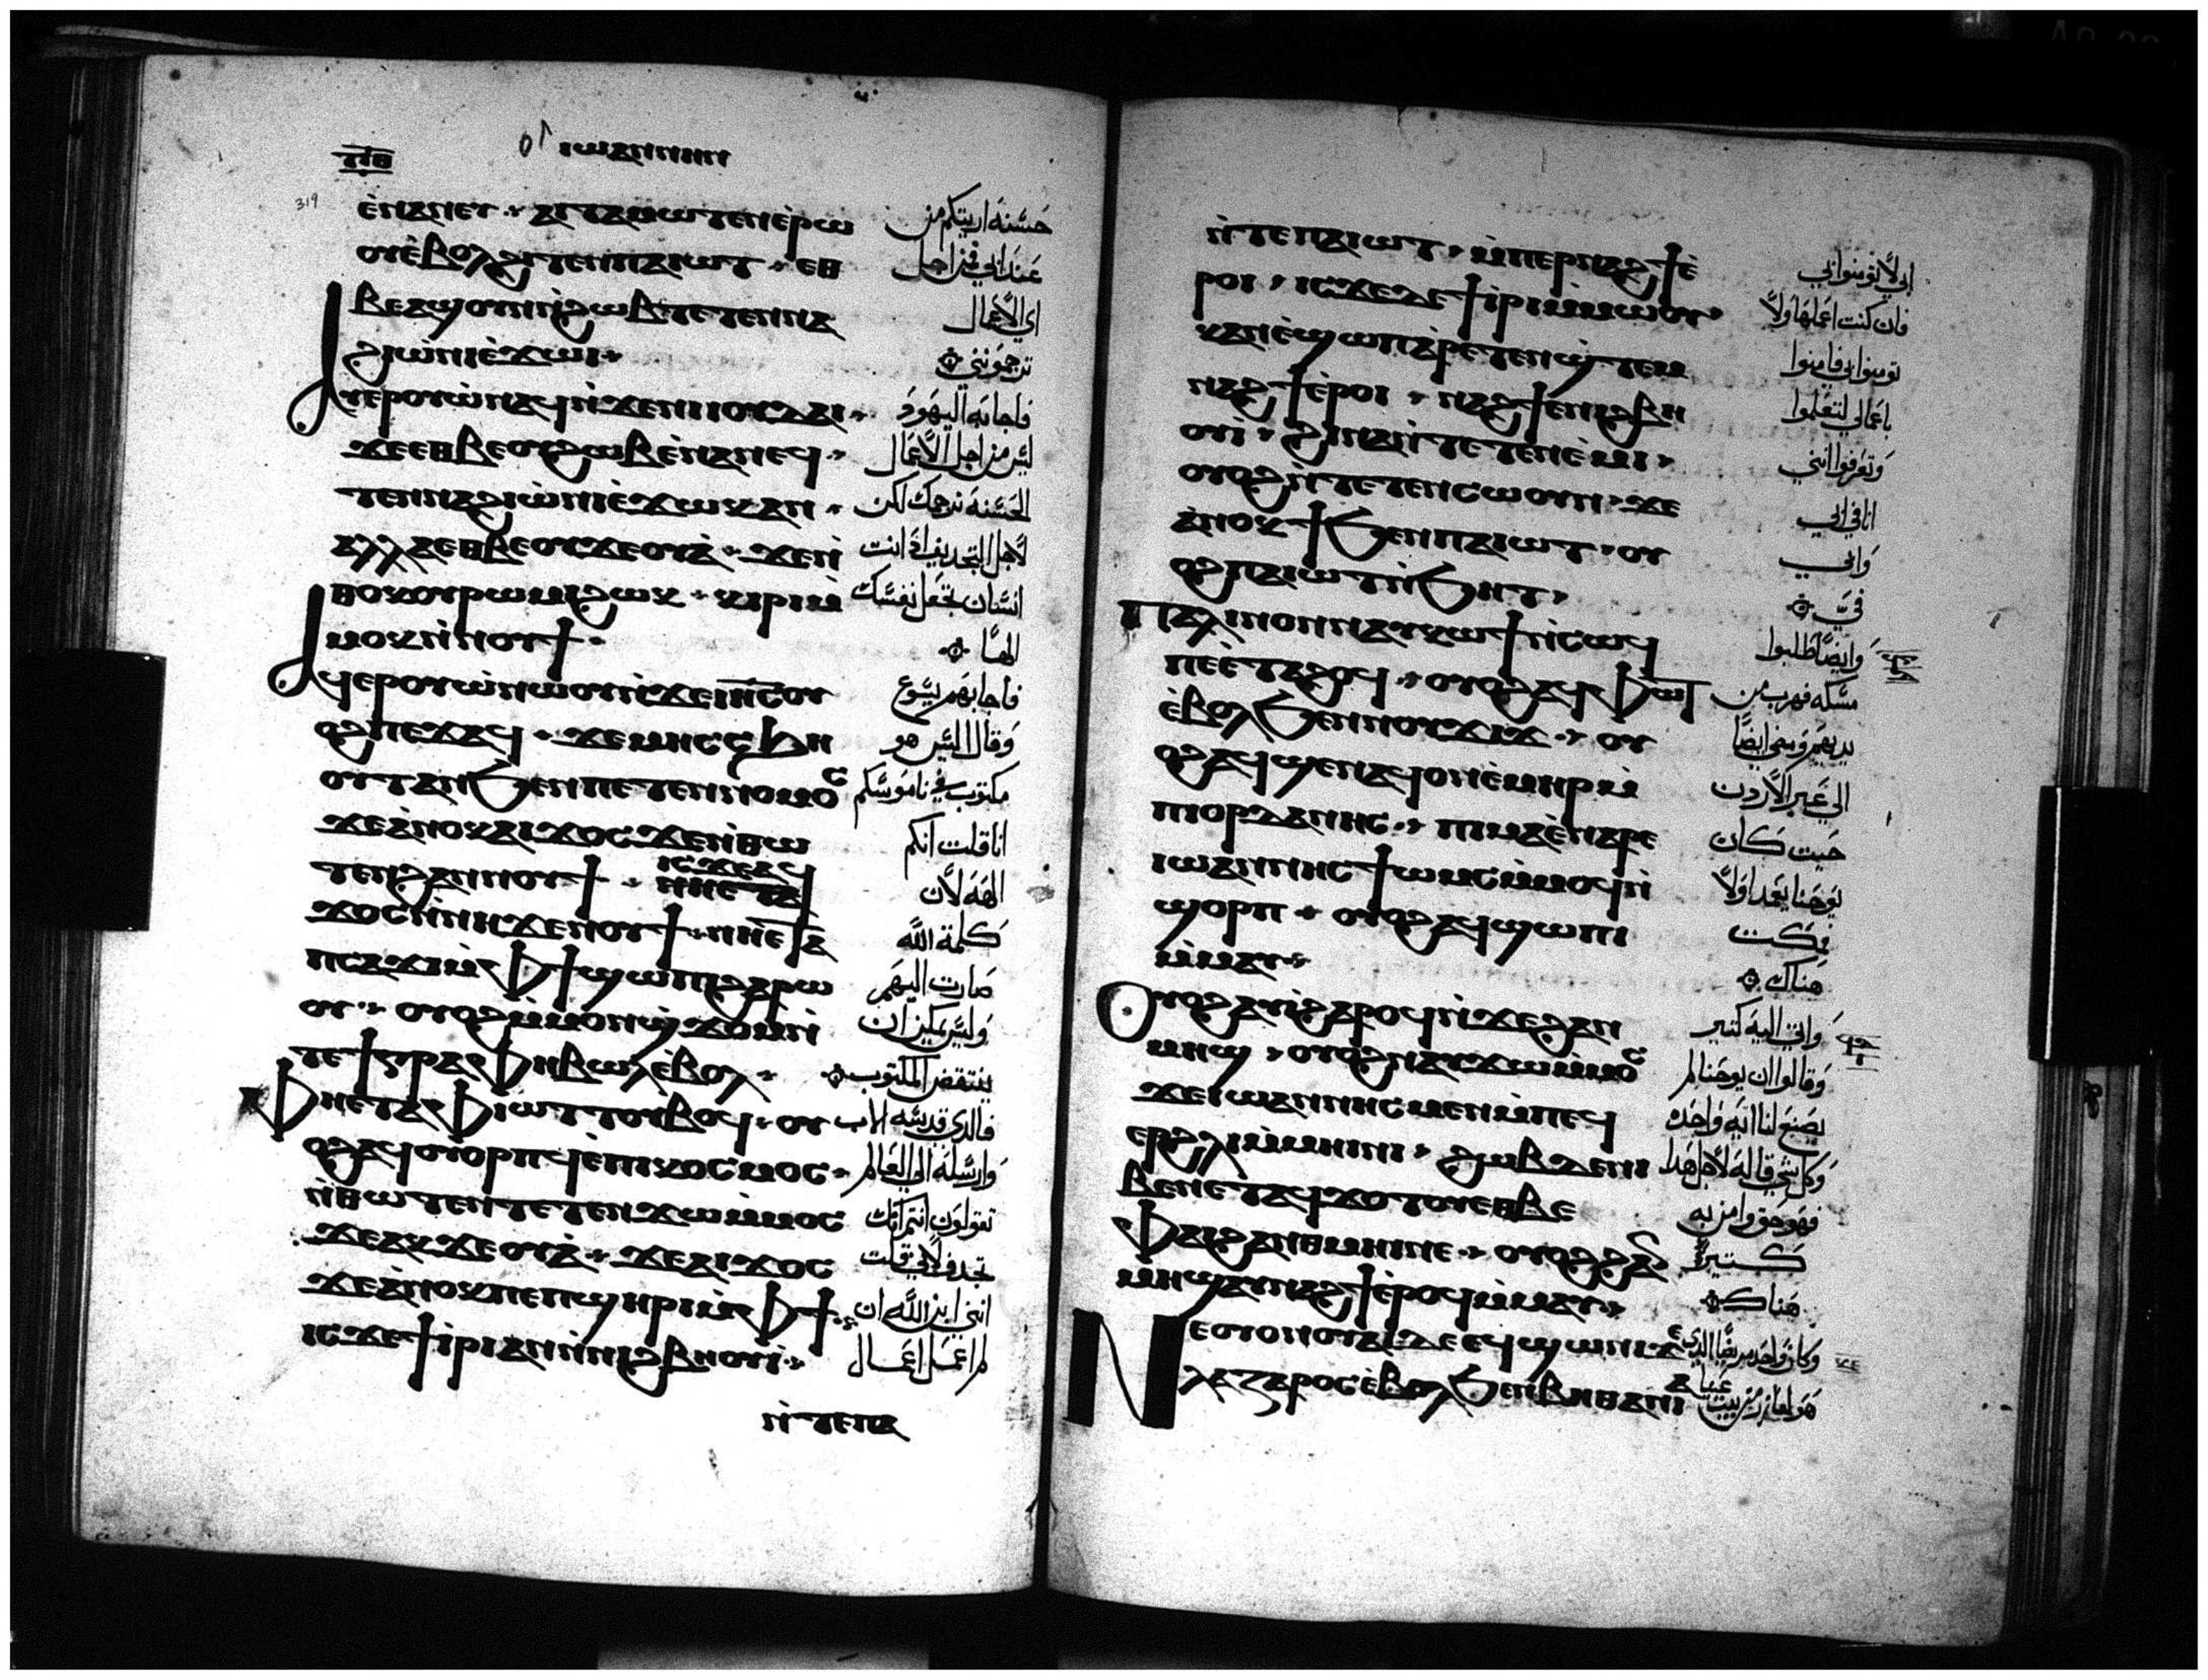 ⲧⲓⲑ
ⲓⲱⲁⲛⲛⲏⲛ
319
ⲉ̀ⲛⲁⲛⲉⲩ ⲁⲓⲧⲁⲙⲱⲧⲉⲛⲉ̀ⲣⲱ حسنه اريتكم من
ⲟⲩⲉ̀ⲃⲟⲗϩⲓⲧⲉⲛⲡⲁⲓⲱⲧ ⲉⲑ عند ابي فمن اجل
ⲃⲉⲁϣⲟⲩⲛⲛ̀ϩⲱⲃⲧⲉⲧⲉⲛⲛⲁ اي الاعمال
ϩⲓⲱ̀ⲛⲓⲉ̀ϫⲱⲓ ترجموني
ⲁⲩⲉⲣⲟⲩⲱ̀ⲛⲁϥⲛ̀ϫⲉⲛⲓⲓⲟⲩⲇⲁⲓ فاجابه اليهود
ϫⲉⲉⲑⲃⲉⲟⲩϩⲱⲃⲉ̀ⲛⲁⲛⲉϥ ليس من اجل الاعمال
ⲧⲉⲛⲛⲁϩⲓⲱ̀ⲛⲓⲉ̀ϫⲱⲕⲁⲛ الحسنه نرجمك لكن
ⲁⲗⲗⲁⲉⲑⲃⲉⲟⲩϫⲉⲟⲩⲁ̀ ϫⲉⲛ̀ لاجل التجديف اذ انت
ⲑⲟⲕⲟⲩⲣⲱⲙⲓϩⲱⲕ ⲕⲓⲣⲓⲙ̀ انسان تجعل نفسك
ⲙⲟⲕⲛ̀ⲛⲟⲩϯ الها
ⲁϥⲉⲣⲟⲩⲱ̀ⲛⲱⲟⲩⲛ̀ϫⲉⲓⲏⲥⲟⲩ فاجابهم يسوع
ⲟϩⲡⲉϫⲁϥ ϫⲉⲙⲏⲥⲥϧⲏ وقال اليس هو
ⲟⲩⲧⲁⲛϧⲉⲛⲡⲉⲧⲉⲛⲛⲟⲙⲟⲥ مكتوب في ناموسكم
ϫⲉⲁ̀ⲛⲟⲕⲁⲓϫⲟⲥϫⲉⲛ̀ⲑⲱ انا قلت انكم
ⲧⲉⲛϩⲁⲛⲛⲟⲩϯ ⲓⲥϫⲉⲁϥ ⲛⲏⲉⲧⲁ الهه لان
ϫⲟⲥⲛ̀ⲛⲏϫⲉⲛⲟⲩϯ ⲛⲏⲉⲧⲁ كلمة الله
ⲡⲥⲁϫⲓⲙ̀ⲫϯϣⲱⲡⲓϩⲁⲣⲱ صارت اليهم
ⲟⲩ ⲟⲩⲟϩⲙ̀ⲙⲟⲛϣ̀ϫⲟⲙⲛ̀ وليس يمكن ان
ⲧⲉϯⲅⲣⲁⲫⲏⲃⲱⲗⲉ̀ⲃⲟⲗ ينتقض المكتوب
ⲫⲏⲉⲧⲁⲫⲓⲱⲧⲧⲟⲩⲃⲟϥ ⲟⲩ فالذي قدسه الاب
ⲟϩⲁϥⲟⲩⲟⲣⲡϥⲉ̀ⲡⲓⲕⲟⲥⲙⲟⲥ وارسله الي العالم
ⲛ̀ⲑⲱⲧⲉⲛⲧⲉⲧⲉⲛϫⲱⲙ̀ⲙⲟⲥ تقولون انتم انك
ϫⲉⲁⲕϫⲉⲟⲩⲁ̀ ϫⲉⲁⲓϫⲟⲥ تجدف لاني قلت
ϫⲉⲁ̀ⲛⲟⲕⲡⲉⲡϣⲏⲣⲓⲙ̀ⲫϯ انني ابن الله ان
ⲓⲥϫⲉϯⲓ̀ⲣⲓⲁⲛⲛ̀ⲛⲓϩⲃⲏⲟⲩⲓ̀ لم اعمل اعمال
ⲛ̀ⲧⲉⲡⲁ
ⲛ̀ⲧⲉⲡⲁⲓⲱⲧ ⲙ̀ⲡⲉⲣⲛⲁϩϯⲉ̀ ابي لا تومنوا بي
ⲣⲟⲓ ⲓⲥϫⲉⲇⲉϯⲓⲣⲓⲙ̀ⲙⲱⲟⲩ فان كنت اعملها ولا
ⲕⲁⲛⲉ̀ϣⲱⲡⲁ̀ⲣⲉⲧⲉⲛϣ̀ⲧⲉⲙ تومنوا بي فامنوا
ⲛⲁϩϯⲉ̀ⲣⲟⲓ ⲛⲁϩϯⲉⲛⲓϩⲃⲏ باعمالي لتعلموا
ⲟⲩⲓ̀ ϩⲓⲛⲁⲛ̀ⲧⲉⲧⲉⲛⲉ̀ⲙⲓ وتعرفوا انني
ⲟⲩⲟϩⲛ̀ⲧⲉⲧⲉⲛⲥⲱⲟⲩⲛ ϫⲉ انا في ابي
ⲁ̀ⲛⲟⲕϯϧⲉⲛⲡⲁⲓⲱⲧ ⲟⲩ وابي
ⲟϩⲡⲁⲓⲱⲧⲛ̀ϧⲏⲧ في
ⲡⲁⲗⲓⲛⲟⲛⲛⲁⲩⲕⲱϯⲛ̀ⲥⲱϥ وايضا طلبوا
ⲡⲉⲉ̀ⲧⲁϩⲟϥ ⲟⲩⲟϩⲁϥⲫⲱⲧ مسكه فهرب من
ⲉ̀ⲃⲟⲗϧⲉⲛⲛⲟⲩϫⲓϫ ⲟⲩ يديهم ومضي ايضا
ⲟϩⲁϥϣⲉⲛⲁϥⲟⲛⲉ̀ⲙⲏⲣⲙ̀ الي عبر الاردن
ⲡⲓⲟⲣⲇⲁⲛⲏⲥ ⲡⲓⲙⲁⲉ̀ⲛⲁⲣⲉ حيث كان
ⲓⲱⲁⲛⲛⲏⲥϯⲱⲙⲥⲙ̀ⲙⲟϥⲛ̀ يوحنا يعمد اولا
ϣⲟⲣⲡ ⲟⲩⲟϩⲁϥϣⲱⲡⲓ ومكث
ⲙ̀ⲙⲁⲩ هناك
ⲟⲩⲟϩⲁⲩⲓ̀ϩⲁⲣⲟϥⲛ̀ϫⲉϩⲁⲛ واتي اليه كثير
ⲙⲏϣ ⲟⲩⲟϩⲛⲁⲩϫⲱⲙ̀ⲙⲟⲥ وقالوا ان يوحنا لم
ϫⲉⲓⲱⲁⲛⲛⲏⲥⲙⲉⲛⲙ̀ⲡⲉϥ يصنع لنا ايه واحده
ⲉⲣϩⲗⲓⲙ̀ⲙⲏⲓⲛⲓ ϩⲱⲃⲇⲉⲛⲓ وكل شي قاله لاجل هذا
ⲃⲉⲛⲉⲧⲁϥϫⲟⲧⲟⲩⲉⲑⲃⲉ فهو حق وامن به
ⲫⲁⲓϩⲁⲛⲑⲙⲏⲓⲛⲉ ⲟⲩⲟϩϩⲁⲛ كثيرا
ⲙⲏϣⲁⲩⲛⲁϩϯⲉ̀ⲣⲟϥⲙ̀ⲙⲁⲩ هناك
ⲛⲉⲟⲩⲟⲛⲟⲩⲁⲓⲇⲉⲉϥϣⲱⲛⲓϫⲉ وكان واحد مريضا الذي
ⲗⲁⲍⲁⲣⲟⲥⲉ̀ⲃⲟⲗϧⲉⲛⲃⲏⲑⲁⲛⲓⲁ هو لعازر من بيت عنيا